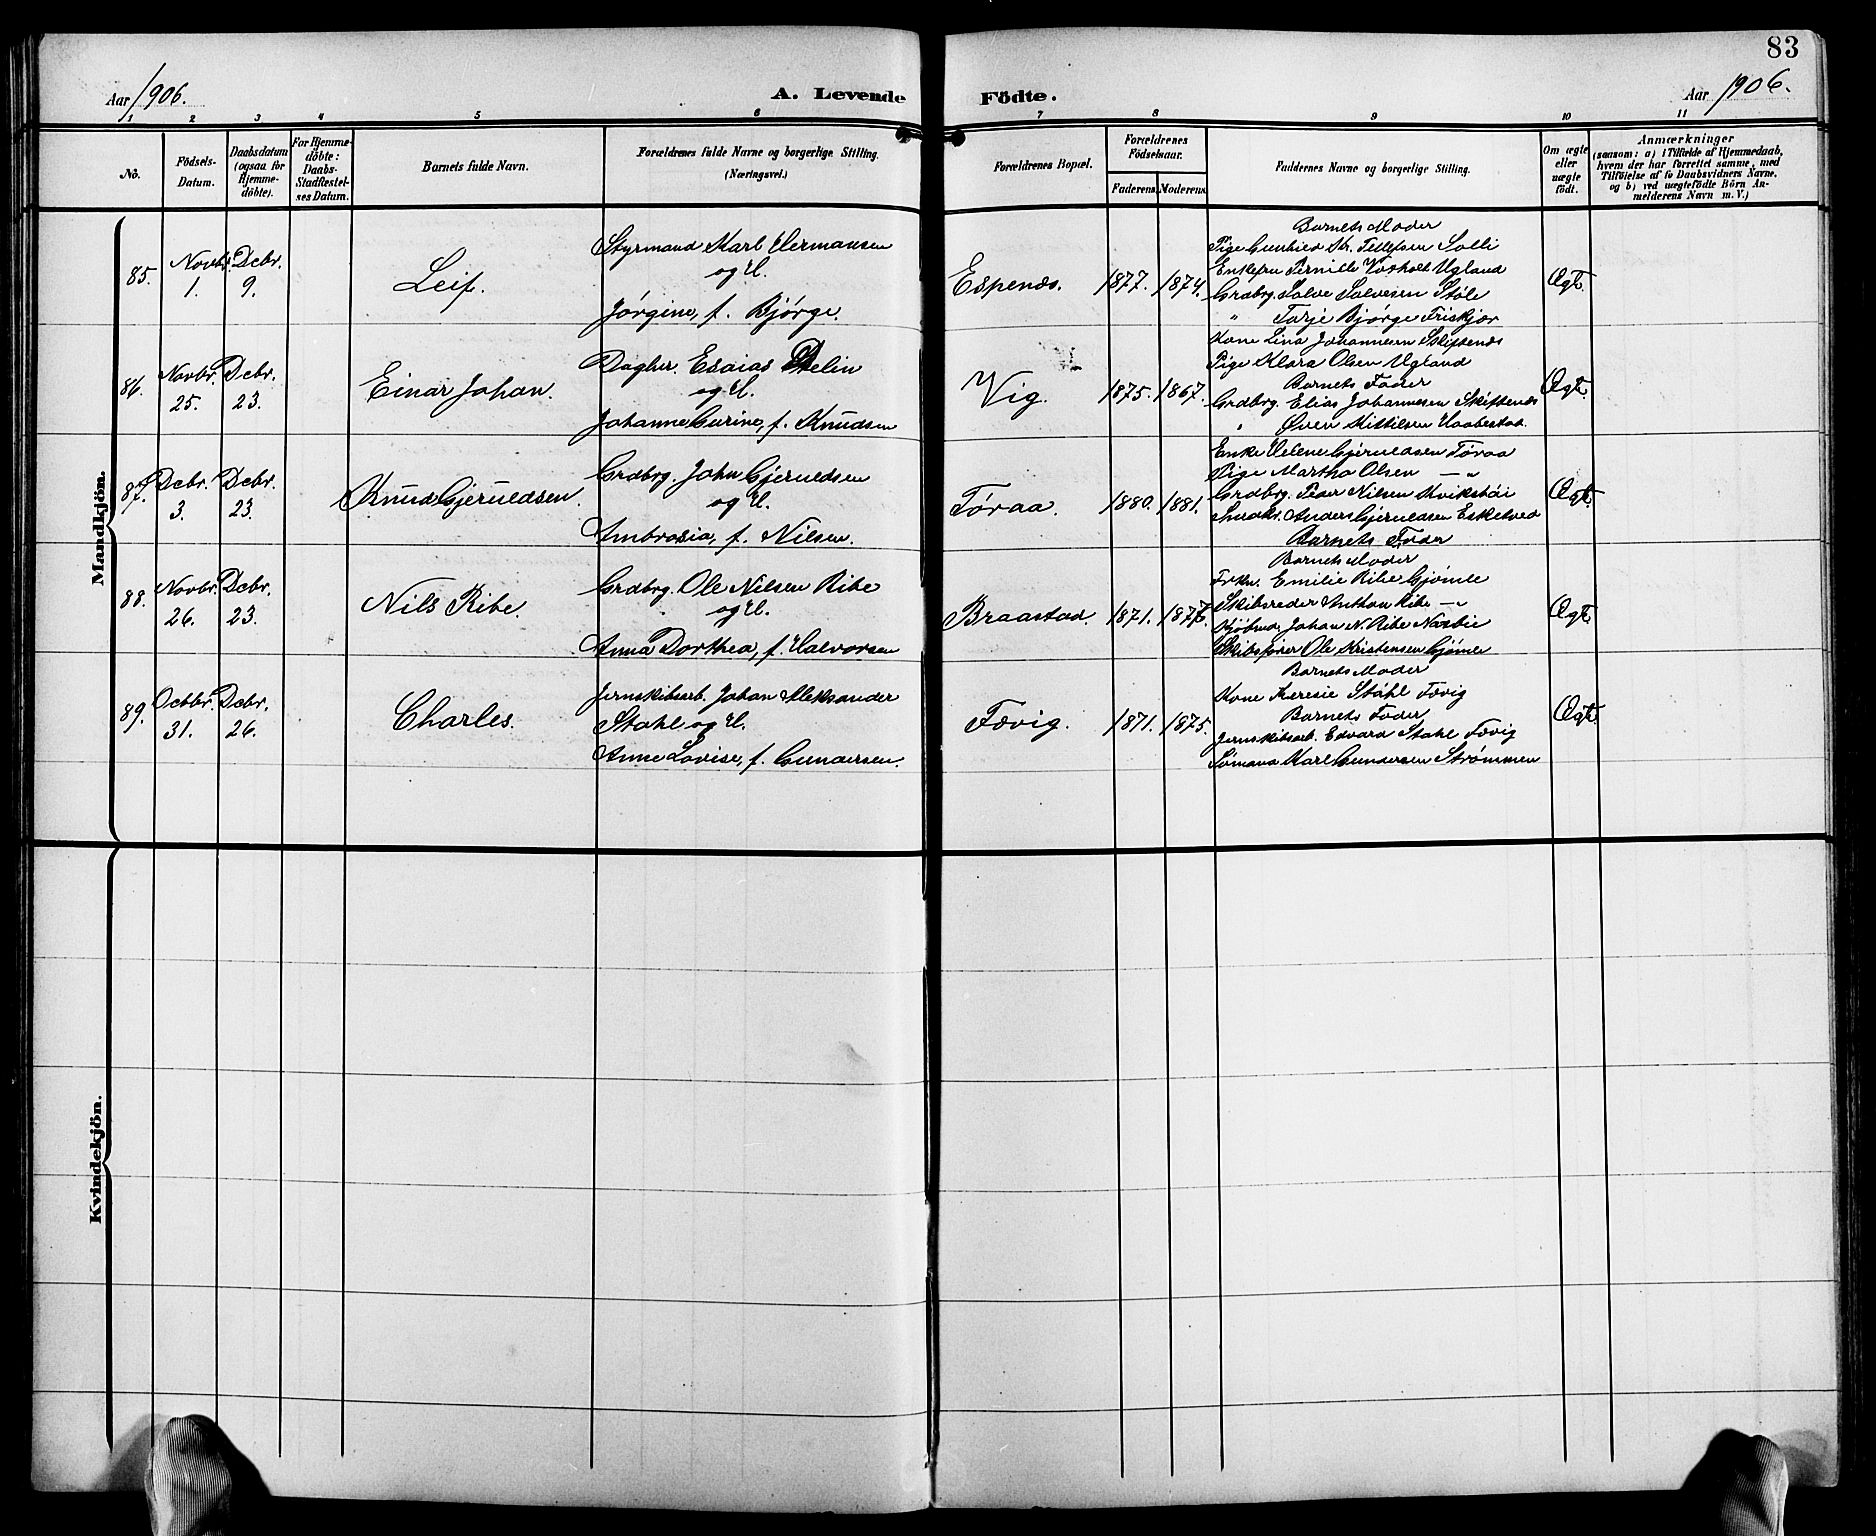 83
Aar 1906.
A. Levende Födte.
Aar 1906.
1 2 3 4 5 6 7 8 9 10 11
No.
Födsels-
Datum.
Daabsdatum
(ogsaa for
Hjemme-
döbte).
For Hjemme-
döbte:
Daabs-
Stadfæstel-
ses Datum.
Barnets fulde Navn.
Forældrenes fulde Navne og borgerlige Stilling.
(Næringsvei.)
Forældrenes Bopæl.
Forældrenes
Födselsaar.
Faderens. Moderens.
Faddernes Navne og borgerlige Stilling.
Om ægte
eller
uægte
födt.
Anmærkninger
(saasom: a) i Tilfælde af Hjemmedaab,
hvem der har forrettet samme, med
Tilföielse af to Daabsvidners Navne,
og b) ved uægtefödte Börn An-
melderens Navn m. V.)
Mandkjön.
85.
Novbr.
1.
Dcbr.
9.
Leif.
Styrmand Karl Hermansen
og H.
Jørgine, f. Bjørge.
Espenes.
1877. 1874.
Barnets Moder
Pige Gunhild Kr. Tellefsen Solli
Enkefru Pernille Vosholt Ugland
Grdbrg. Salve Salvesen Støle
" Tarje Bjørge Friskjør
Ægt.
86.
Novbr.
25.
Dcbr.
23.
Einar Johan.
Daglnr. Esaias Delin
og H.
Johanne Gurine, f. Knudsen
Vig.
1875. 1867.
Kone Lina Johannesen Skiftenes
Pige Klara Olsen Ugland
Barnets Fader
Grdbrg. Elias Johannesen Skiftenes
" Sven Kittilsen Haabestad.
Ægt.
87.
Dcbr.
3.
Dcbr.
23.
Knud Gjeruldsen.
Grdbrg. John Gjeruldsen
og H.
Ambrosia, f. Nilsen.
Tøraa.
1880. 1881.
Enke Helene Gjeruldsen Tøraa
Pige Martha Olsen — "
Grdbrg. Peder Nilsen Kvikshei
Anders Gjeruldsen Eskelved
Barnets Fader
Ægt.
88.
Novbr.
26.
Dcbr.
23.
Nils Ribe.
Grdbrg. Ole Nilsen Ribe
og H.
Anna Dorthea, f. Halvorsen
Braastad.
1871. 1877.
Barnets Moder
Frkn. Emilie Ribe Gjømle
Skibsreder Anthon Ribe — "
Kjøbmd. Johan N. Ribe Narbie
Skibsfører Ole Kristensen Gjømle
Ægt.
89.
Octbr.
31.
Dcbr.
26.
Charles.
Jernskibsarb. Johan Aleksander
Stahl og H.
Anne Lovise, f. Gundersen.
Fævig.
1871. 1875.
Barnets Moder
Kone Teresie Ståhl Fævig
Barnets Fader
Jernskibsarb. Edvard Stahl Fævig
Sømand Karl Gundersen Strømmen
Ægt.
Kvindekjön.